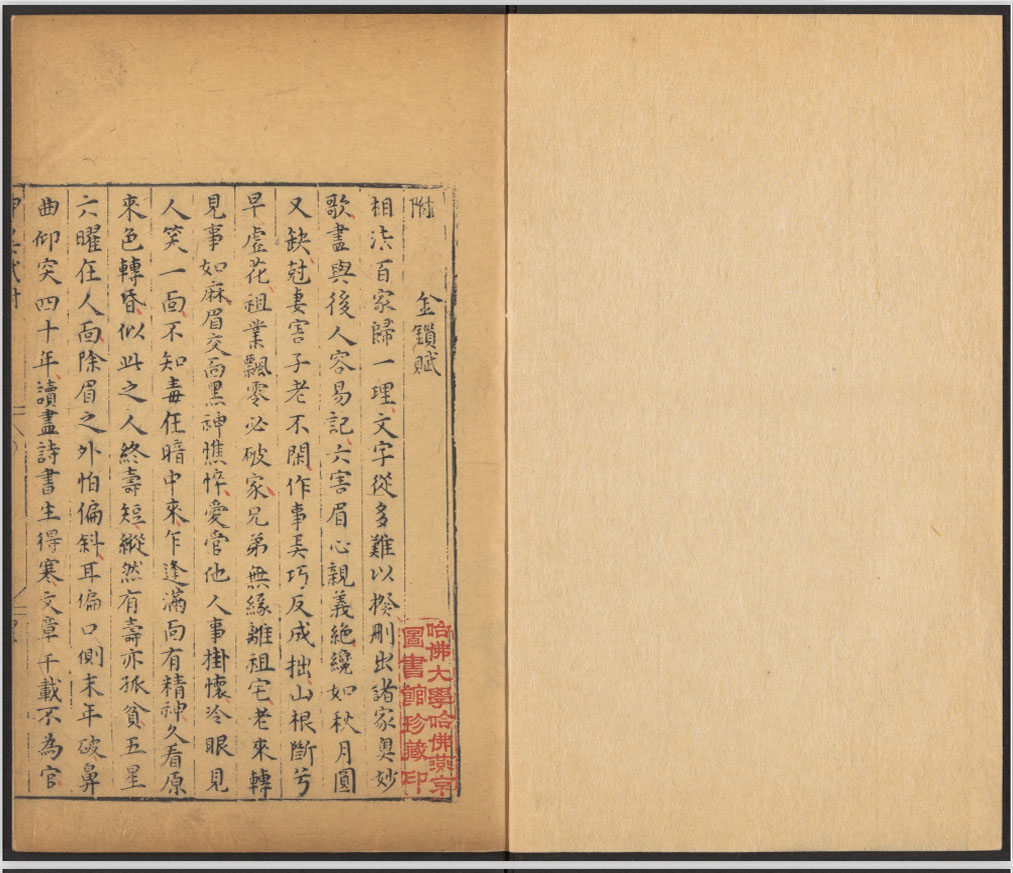 附
金鎖賦
相法百家歸一理文字從多難以揆刪出諸家奧妙
歌盡與後人容易記六害眉心親義絕纔如秋月圓
又缺尅妻害子老不閑作事弄巧反成拙山根斷兮
早虛花祖業飄零必破家兄弟無緣離祖宅老來轉
見事如麻眉交面黑神憔悴愛管他人事掛懷冷眼見
人笑一面不知毒在暗中來乍逢滿面有精神久看原
來色轉昏似此之人終壽短縱然有壽亦孤貧五星
六曜在人面除眉之外怕偏斜耳偏口側末年破鼻
曲仰突四十年讀盡詩書生得寒文章千載不為官
哈佛大學哈佛燕京
圖書館珍藏印